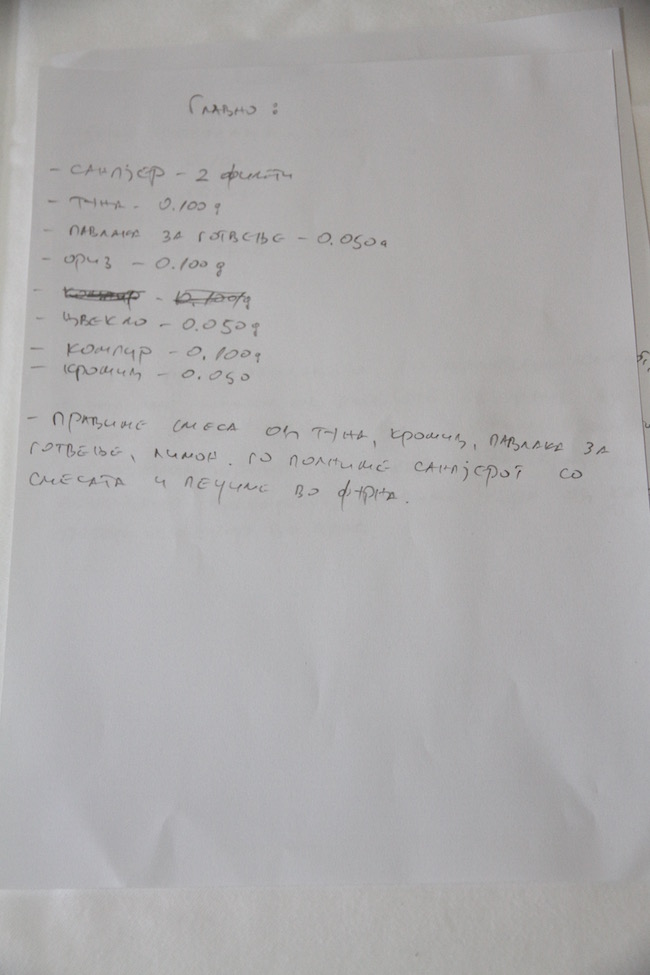 Главно :
- САНПЈЕР - 2 филети
- ТУНА - 0.100 g
- ПАВЛАКА ЗА ГОТВЕЊЕ - 0.050g
- ОРИЗ - 0.100 g
- ЦВЕКЛО - 0.050 g
- КОМПИР - 0.100g
- КРОМИД - 0.050
- ПРАВИМЕ СМЕСА ОД ТУНА, КРОМИД, ПАВЛАКА ЗА
ГОТВЕЊЕ, ЛИМОН. ГО ПОЛНИМЕ САНПЈЕРОТ СО
СМЕСАТА И ПЕЧИМЕ ВО ФУРНА.